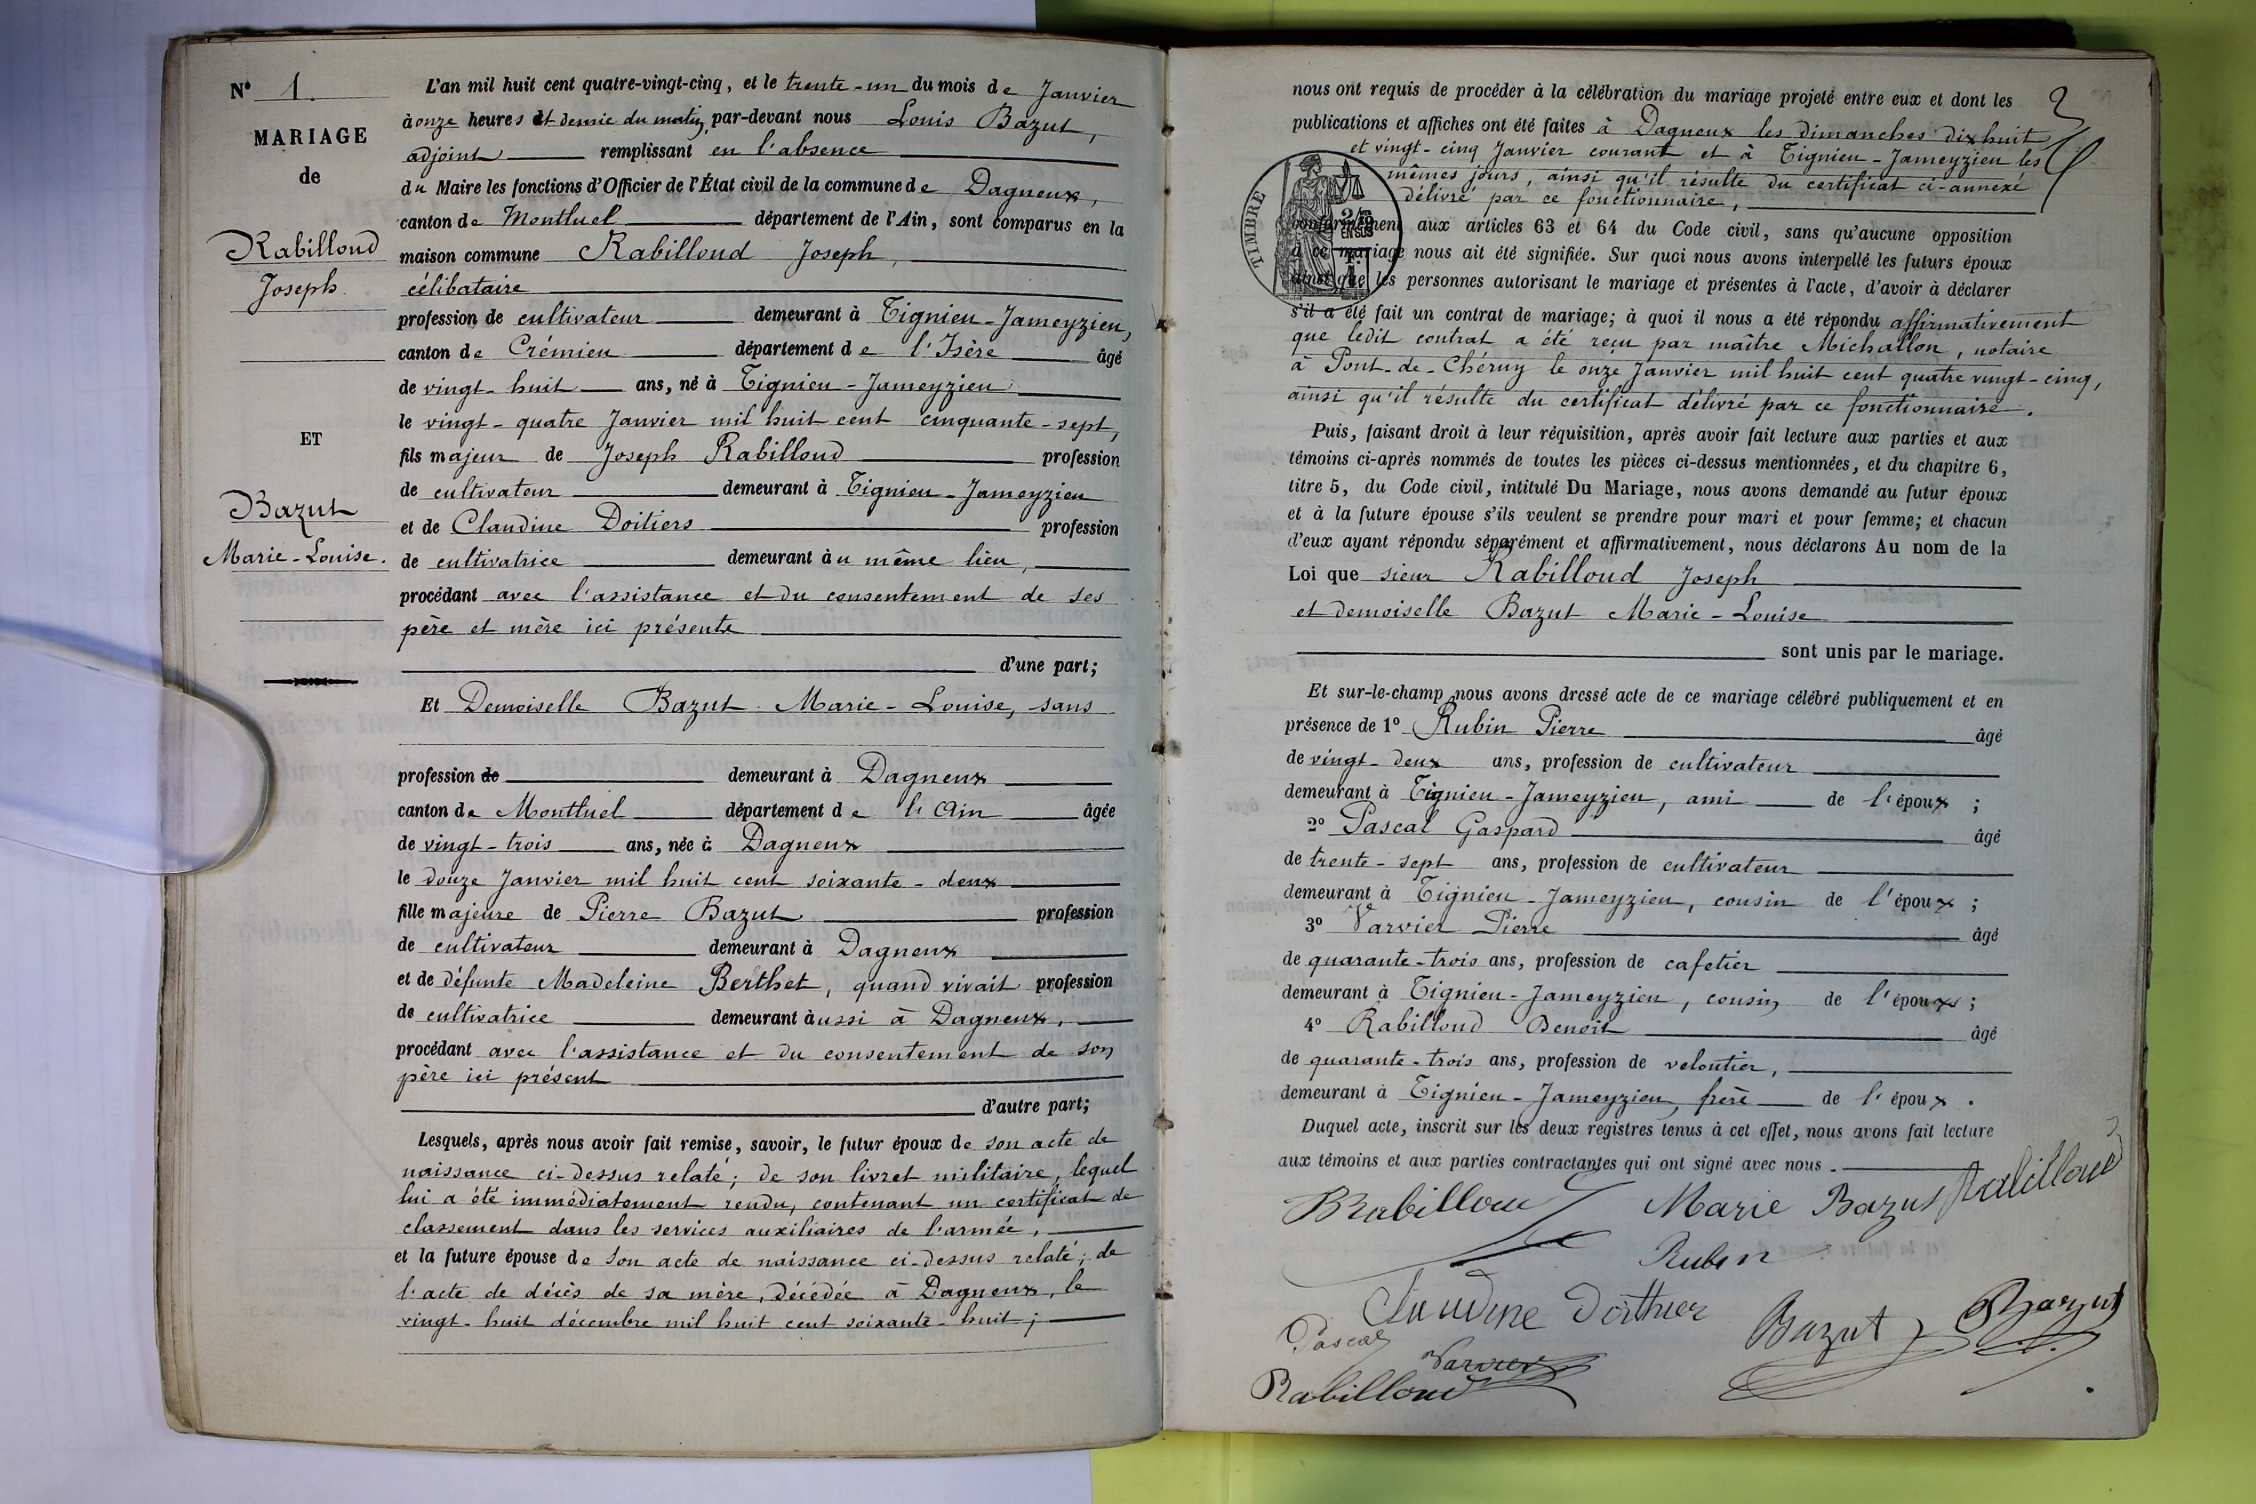 N° 1.
MARIAGE
de
Rabilloud
Joseph
ET
Bazut
Marie-Louise.
L'an mil huit cent quatre-vingt-cinq, et le trente-un du mois de Janvier
à onze heures et demie du matin, par-devant nous Louis Bazut,
adjoint remplissant en l'absence
du Maire les fonctions d'Officier de l'État civil de la commune de Dagneux,
canton de Montluel département de l'Ain, sont comparus en la
maison commune Rabilloud Joseph,
célibataire
profession de cultivateur demeurant à Tignieu-Jameyzieu,
canton de Crémieu département de l'Isère âgé
de vingt-huit ans, né à Tignieu-Jameyzieu
le vingt-quatre Janvier mil huit cent cinquante-sept,
fils majeur de Joseph Rabilloud profession
de cultivateur demeurant à Tignieu-Jameyzieu
et de Claudine Doitiers profession
de cultivatrice demeurant au même lieu,
procédant avec l'assistance et du consentement de ses
père et mère ici présents
d'une part;
Et Demoiselle Bazut Marie-Louise, sans
profession de demeurant à Dagneux
canton de Montluel département de l'Ain âgée
de vingt-trois ans, née à Dagneux
le douze Janvier mil huit cent soixante-deux
fille majeure de Pierre Bazut profession
de cultivateur demeurant à Dagneux
et de défunte Madeleine Berthet, quand vivait profession
de cultivatrice demeurant aussi à Dagneux,
procédant avec l'assistance et du consentement de son
père ici présent
d'autre part;
Lesquels, après nous avoir fait remise, savoir, le futur époux de son acte de
naissance ci-dessus relaté; de son livret militaire, lequel
lui a été immédiatement rendu, contenant un certificat de
classement dans les services auxiliaires de l'armée,
et la future épouse de son acte de naissance ci-dessus relaté; de
l'acte de décès de sa mère, décédée à Dagneux, le
vingt-huit décembre mil huit cent soixante-huit;
nous ont requis de procéder à la célébration du mariage projeté entre eux et dont les
publications et affiches ont été faites à Dagneux les dimanches dix huit
et vingt-cinq Janvier courant et à Tignieu-Jameyzieu les
mêmes jours, ainsi qu'il résulte du certificat ci-annexé
délivré par ce fonctionnaire,
TIMBRE
2/10 EN SUS
conformément aux articles 63 et 64 du Code civil, sans qu'aucune opposition
à ce mariage nous ait été signifiée. Sur quoi nous avons interpellé les futurs époux
ainsi que les personnes autorisant le mariage et présentes à l'acte, d'avoir à déclarer
s'il a été fait un contrat de mariage; à quoi il nous a été répondu affirmativement
que ledit contrat a été reçu par maître Michallon, notaire
à Pont-de-Chéruy le onze Janvier mil huit cent quatre vingt-cinq,
ainsi qu'il résulte du certificat délivré par ce fonctionnaire.
Puis, faisant droit à leur réquisition, après avoir fait lecture aux parties et aux
témoins ci-après nommés de toutes les pièces ci-dessus mentionnées, et du chapitre 6,
titre 5, du Code civil, intitulé Du Mariage, nous avons demandé au futur époux
et à la future épouse s'ils veulent se prendre pour mari et pour femme; et chacun
d'eux ayant répondu séparément et affirmativement, nous déclarons Au nom de la
Loi que sieur Rabilloud Joseph
et demoiselle Bazut Marie-Louise
sont unis par le mariage.
Et sur-le-champ nous avons dressé acte de ce mariage célébré publiquement et en
présence de 1° Rubin Pierre âgé
de vingt-deux ans, profession de cultivateur
demeurant à Tignieu-Jameyzieu, ami de l'époux;
2° Pascal Gaspard âgé
de trente-sept ans, profession de cultivateur
demeurant à Tignieu-Jameyzieu, cousin de l'époux;
3° Varvier Pierre âgé
de quarante-trois ans, profession de cafetier
demeurant à Tignieu-Jameyzieu, cousin de l'époux;
4° Rabilloud Benoit âgé
de quarante-trois ans, profession de veloutier,
demeurant à Tignieu-Jameyzieu, frère de l'époux.
Duquel acte, inscrit sur les deux registres tenus à cet effet, nous avons fait lecture
aux témoins et aux parties contractantes qui ont signé avec nous.
BRabilloud Marie Bazut Rabilloud
Rubin
Claudine Doithier
Pascal Varvier Bazut Bazut
Rabilloud